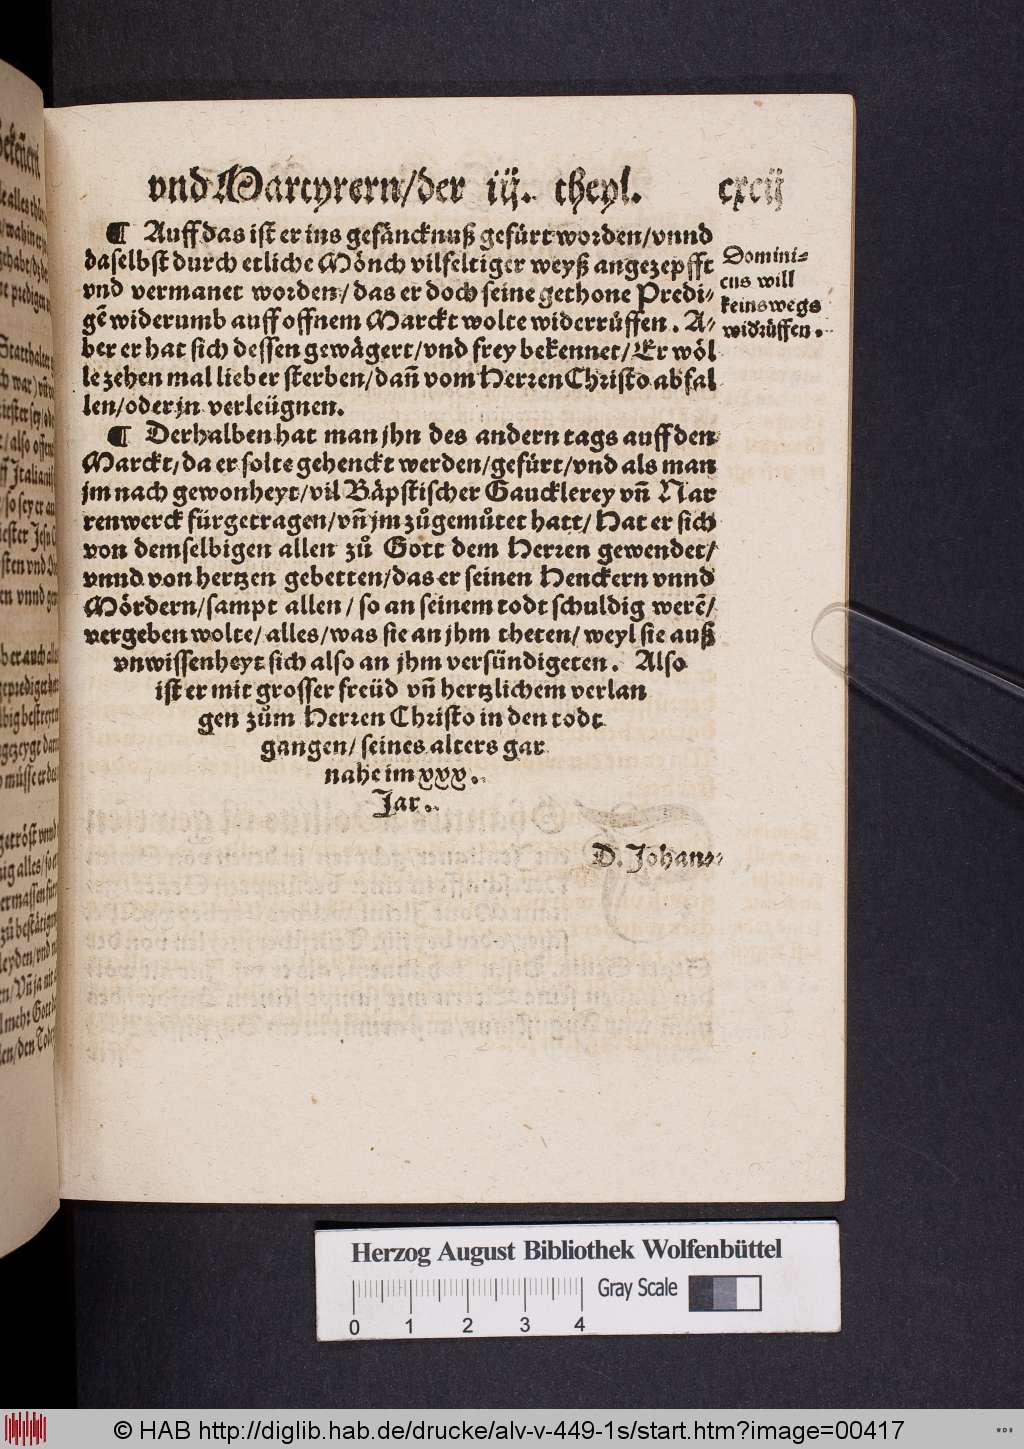 vnd Martyrern/der iij. theyl. cxcij
¶ Auff das ist er ins gefäncknuß gefürt worden/vnnd
daselbst durch etliche Mönch vilfeltiger weyß angezepfft
vnd vermanet worden/das er doch seine gethone Predi⸗
gẽ widerumb auff offnem Marckt wolte widerrüffen. A⸗
ber er hat sich dessen gewägert/vnd frey bekennet/Er wöl
le zehen mal lieber sterben/dañ vom Herren Christo abfal
len/oder jn verleügnen.
Domini⸗
cus will
keins wegs
widrüffen.
¶ Derhalben hat man jhn des andern tags auff den
Marckt/da er solte gehenckt werden/gefürt/vnd als man
jm nach gewonheyt/vil Bäpstischer Gaucklerey vñ Nar
renwerck fürgetragen/vñ jm zůgemůtet hatt/Hat er sich
von demselbigen allen zů Gott dem Herren gewendet/
vnnd von hertzen gebetten/das er seinen Henckern vnnd
Mördern/sampt allen/so an seinem todt schuldig werẽ/
vergeben wolte/alles/was sie an jhm theten/weyl sie auß
vnwissenheyt sich also an jhm versündigeten. Also
ist er mit grosser freüd vñ hertzlichem verlan
gen zům Herren Christo in den todt
gangen/seines alters gar
nahe im xxx.
Jar.
D. Johan⸗
Herzog August Bibliothek Wolfenbüttel
Gray Scale
0 1 2 3 4
© HAB http://diglib.hab.de/drucke/alv-v-449-1s/start.htm?image=00417